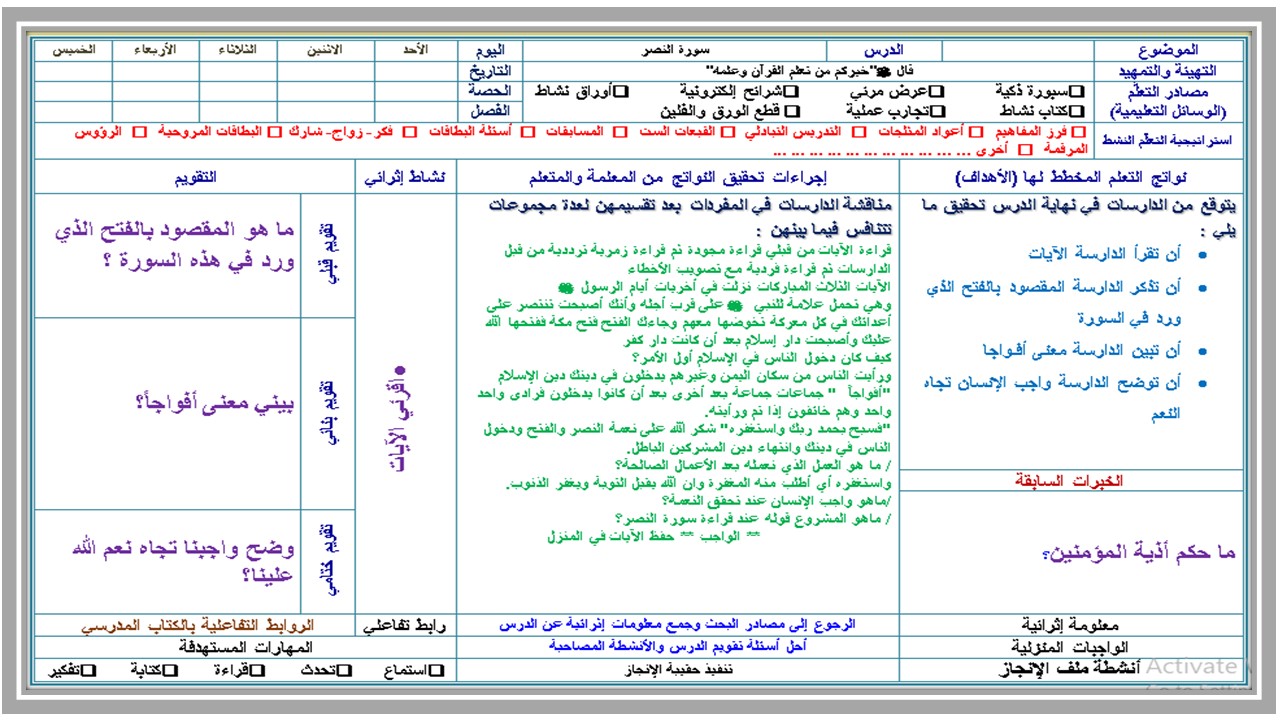 الموضوع
الدرس
سورة النصر
اليوم
الأحد
الاثنين
الثلاثاء
الأربعاء
الخميس
التهيئة والتمهيد
قال ﷺ"خيركم من تعلم القرآن وعلمه"
التاريخ
مصادر التعلم
(الوسائل التعليمية)
❑سبورة ذكية ❑عرض مرئي ❑شرائح إلكترونية ❑أوراق نشاط
❑كتاب نشاط ❑تجارب عملية ❑ قطع الورق والفلين
الحصة
الفصل
استراتيجية التعلم النشط
❑ فرز المفاهيم ❑ أعواد المثلجات ❑ التدريس التبادلي ❑ القبعات الست ❑ المسابقات ❑ أسئلة البطاقات ❑ فكر- زواج- شارك ❑ البطاقات المروحية ❑ الرؤوس
المرقمة ❑ أخرى ... ... ... ... ... ... ... ... ... ... ...
نواتج التعلم المخطط لها (الأهداف)
إجراءات تحقيق النواتج من المعلمة والمتعلم
نشاط إثرائي
التقويم
يتوقع من الدارسات في نهاية الدرس تحقيق ما
يلي :
• أن تقرأ الدارسة الآيات
• أن تذكر الدارسة المقصود بالفتح الذي
ورد في السورة
• أن تبين الدارسة معنى أفواجا
• أن توضح الدارسة واجب الإنسان تجاه
النعم
الخبرات السابقة
ما حكم أذية المؤمنين؟
مناقشة الدارسات في المفردات بعد تقسيمهن لعدة مجموعات
تتنافس فيما بينهن :
قراءة الآيات من قبلي قراءة مجودة ثم قراءة زمرية ترددية من قبل
الدارسات ثم قراءة فردية مع تصويب الأخطاء
الآيات الثلاث المباركات نزلت في أخريات أيام الرسول ﷺ
وهي تحمل علامة للنبي ﷺ على قرب أجله وأنك أصبحت تنتصر على
أعدائك في كل معركة تخوضها معهم وجاءك الفتح فتح مكة ففتحها الله
عليك وأصبحت دار إسلام بعد أن كانت دار كفر
كيف كان دخول الناس في الإسلام أول الأمر؟
ورأيت الناس من سكان اليمن وغيرهم يدخلون في دينك دين الإسلام
"أفواجاً " جماعات جماعة بعد أخرى بعد أن كانوا يدخلون فرادى واحد
واحد وهم خائفون إذا تم ورأيته.
"فسبح بحمد ربك واستغفره" شكر الله على نعمة النصر والفتح ودخول
الناس في دينك وانتهاء دين المشركين الباطل.
/ ما هو العمل الذي نعمله بعد الأعمال الصالحة؟
واستغفره أي أطلب منه المغفرة وان الله يقبل التوبة ويغفر الذنوب.
/ماهو واجب الإنسان عند تحقق النعمة؟
/ ماهو المشروع قوله عند قراءة سورة النصر؟
** الواجب ** حفظ الآيات في المنزل
•اقرئي الآيات
تقويم قبلي
ما هو المقصود بالفتح الذي
ورد في هذه السورة ؟
تقويم بنائي
بيني معنى أفواجاً؟
تقويم ختامي
وضح واجبنا تجاه نعم الله
علينا؟
معلومة إثرائية
الرجوع إلى مصادر البحث وجمع معلومات إثرائية عن الدرس
رابط تفاعلي
الروابط التفاعلية بالكتاب المدرسي
الواجبات المنزلية
أحل أسئلة تقويم الدرس والأنشطة المصاحبة
المهارات المستهدفة
أنشطة ملف الإنجاز
تنفيذ حقيبة الإنجاز
❑استماع ❑تحدث ❑قراءة ❑كتابة ❑تفكير
Activate